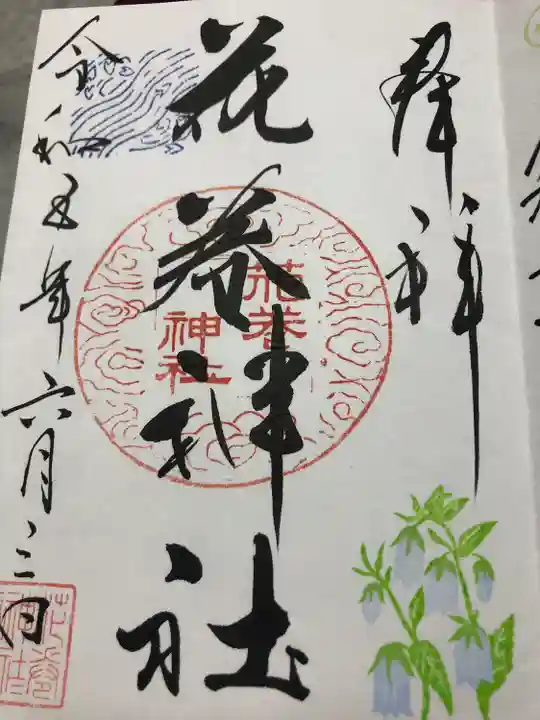 奉拝
花巻神社
花巻
神社
令和五年六月三日